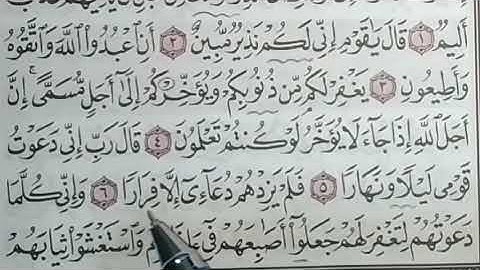 أَلِيمٌ ١ قَالَ يَٰقَوْمِ إِنِّى لَكُمْ نَذِيرٌ مُّبِينٌ ٢ أَنِ ٱعْبُدُوا۟ ٱللَّهَ وَٱتَّقُوهُ
وَأَطِيعُونِ ٣ يَغْفِرْ لَكُم مِّن ذُنُوبِكُمْ وَيُؤَخِّرْكُمْ إِلَىٰٓ أَجَلٍ مُّسَمًّى ۚ إِنَّ
أَجَلَ ٱللَّهِ إِذَا جَآءَ لَا يُؤَخَّرُ لَوْ كُنتُمْ تَعْلَمُونَ ٤ قَالَ رَبِّ إِنِّى دَعَوْتُ
قَوْمِى لَيْلًا وَنَهَارًا ٥ فَلَمْ يَزِدْهُمْ دُعَآءِىٓ إِلَّا فِرَارًا ٦ وَإِنِّى كُلَّمَا
دَعَوْتُهُمْ لِتَغْفِرَ لَهُمْ جَعَلُوٓا۟ أَصَٰبِعَهُمْ فِىٓ وَٱسْتَغْشَوْا۟ ثِيَابَهُمْ